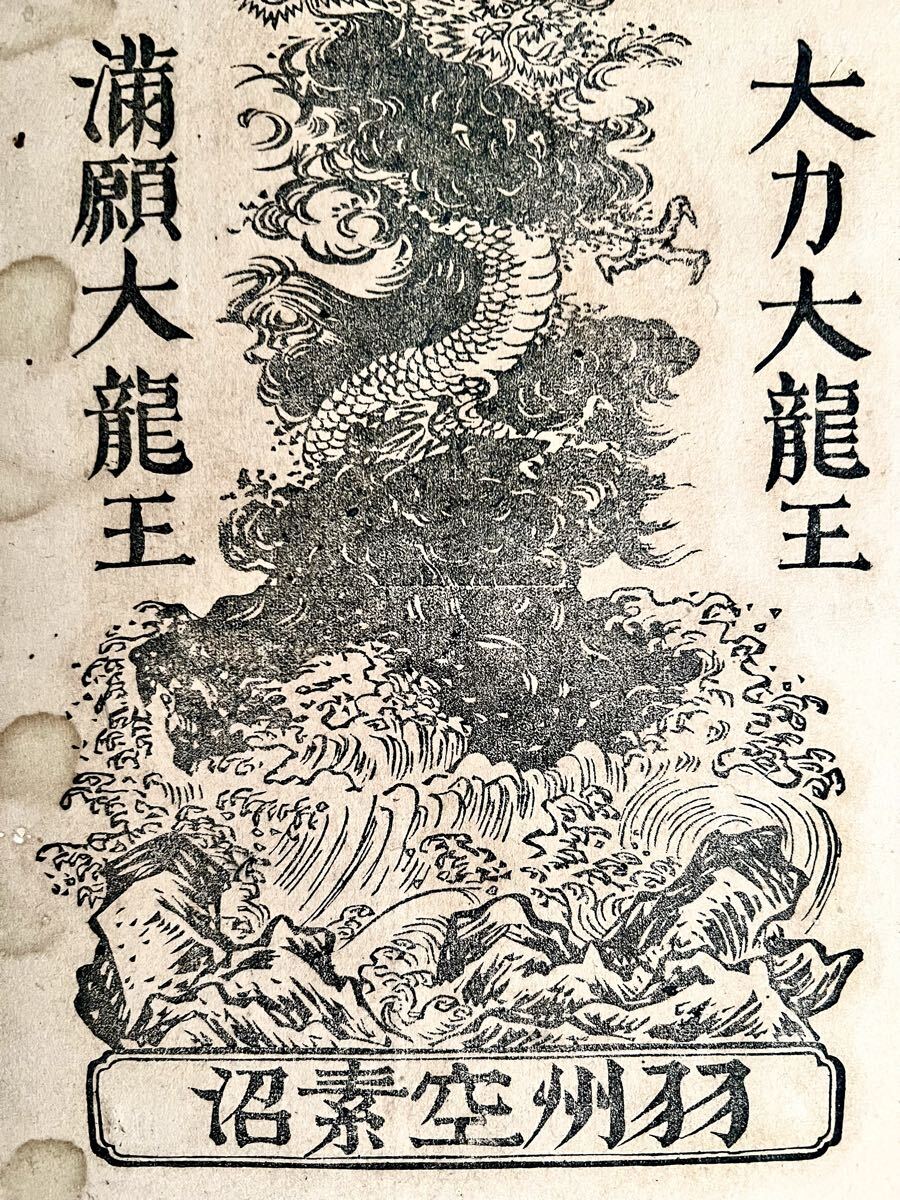 大力大龍王
満願大龍王
羽州空素沼